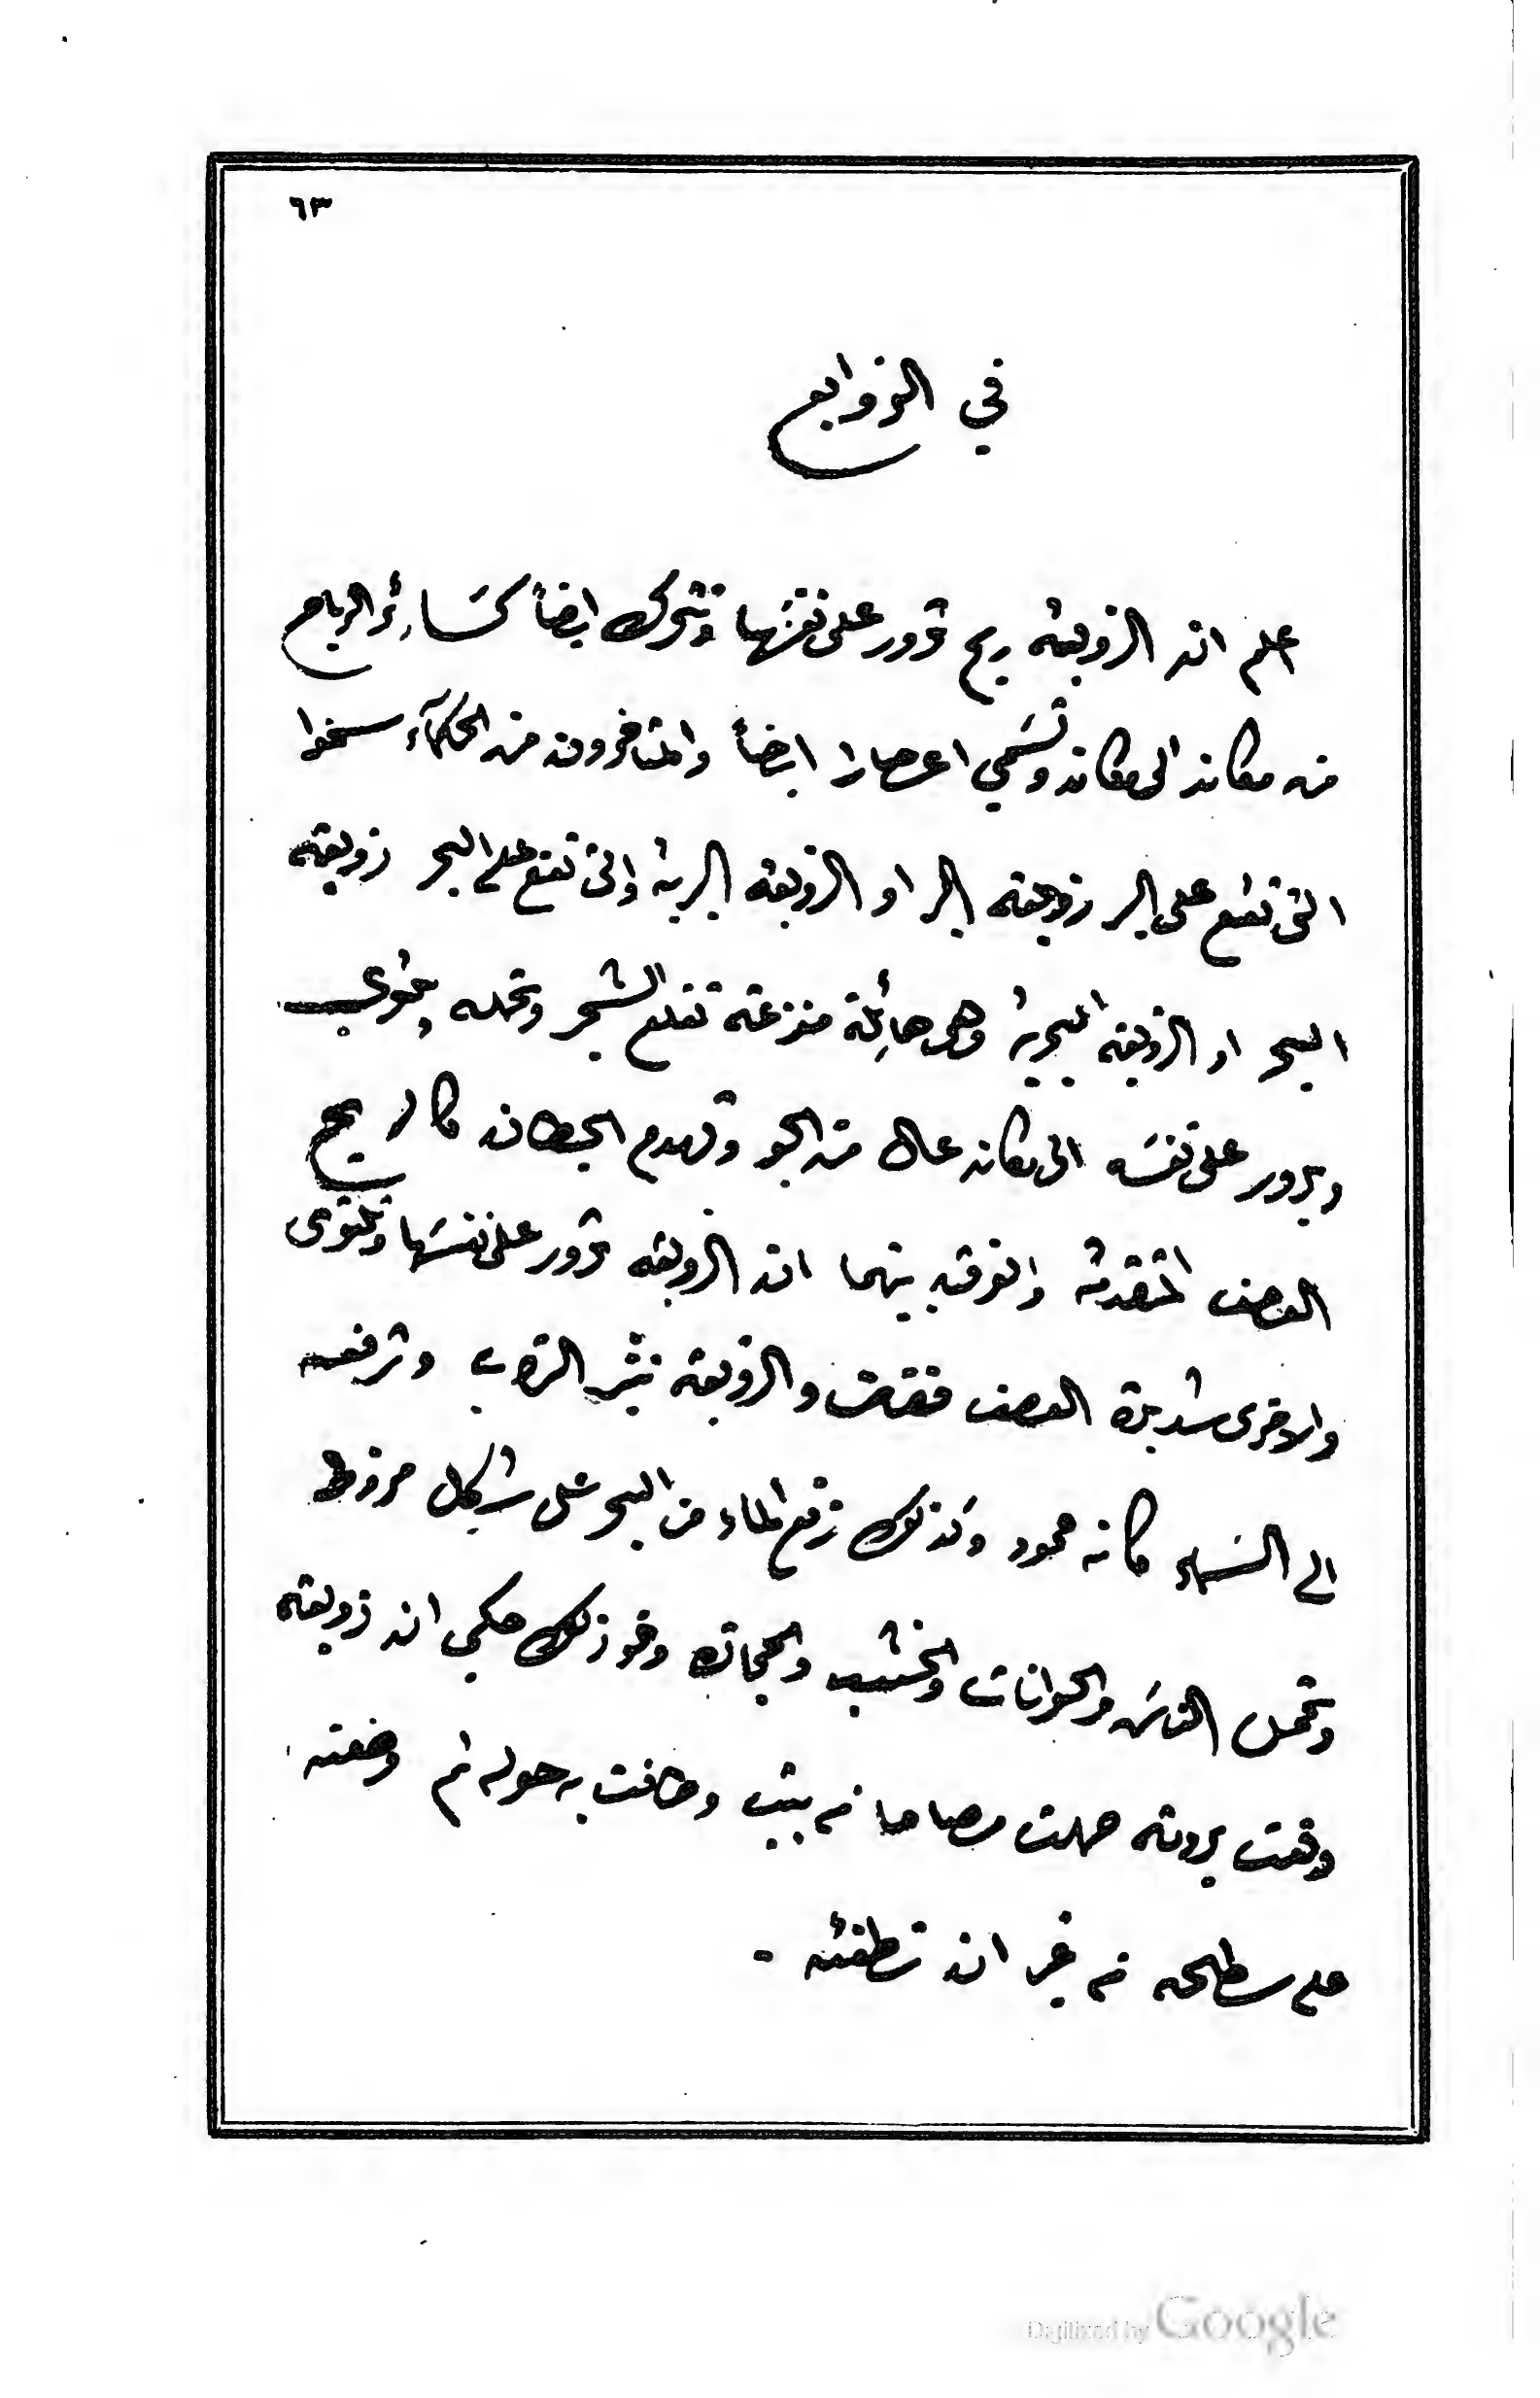 ٦٣
في الزوابع
اعلم ان الزوبعة ريح تدور على نفسها وتتحرك ايضاً كسائر الرياح
من مكان الى مكان وتسمي اعصارا ايضاً والمتاخرون من الحكمآء سموا
التي تقع على البر زوبعة البر او الزوبعة البرية والتي تقع على البحر زوبعة
البحر او الزوبعة البحرية وهي هائلة مفزعة تقلع الشجر وتحمله
ويدور على نفسه الى مكان عال من الجو وتهدم الحيطان كالريح
العصف المتقدمة والفرق بينهما ان الزوبعة تدور على نفسها وتلتوى
والاخرى شديدة العصف فقط والزوبعة تثير التراب وترفعه
الى السماء كانه عمود وكذلك ترفع الماء من البحر على شكل مخروط
وتحمل الناس والحيوانات والخشب والحجارة ونحو ذلك حكي ان زوبعة
وقعت برومة حملت مصباحا من بيت وطافت به حوله ثم وضعته
على سطحه من غير ان تطفئه -
Digitized by Google